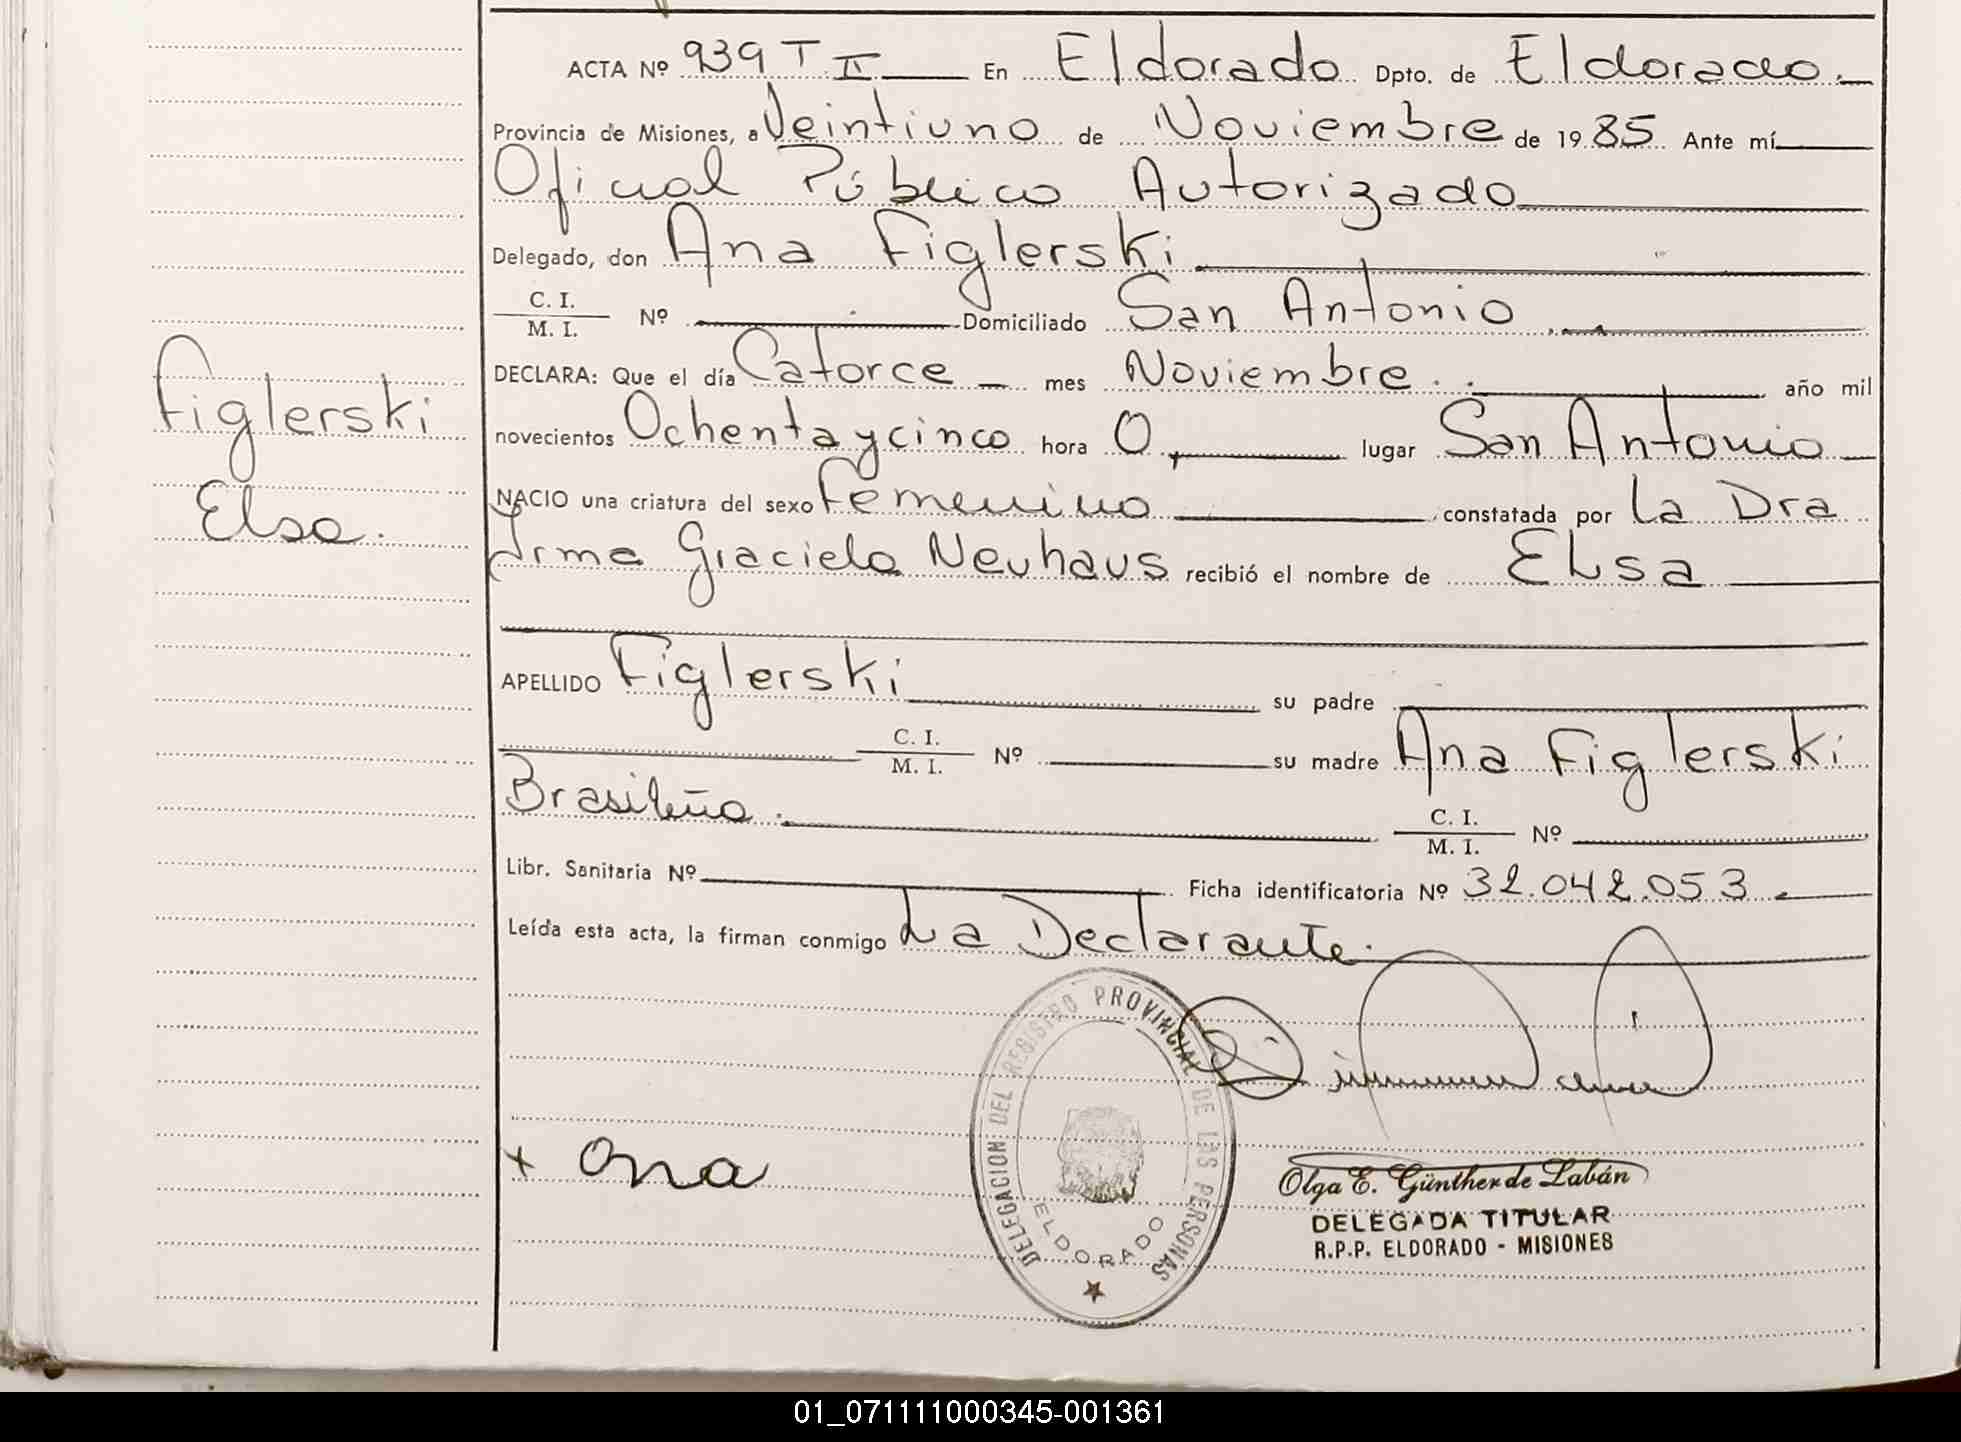 ACTA Nº 939 T II En Eldorado Dpto. de Eldorado.
Provincia de Misiones, a Veintiuno de Noviembre de 1985 Ante mí
Oficial Público Autorizado
Delegado, don Ana Figlerski
C. I.
M. I. Nº Domiciliado San Antonio
DECLARA: Que el día Catorce mes Noviembre. año mil
novecientos Ochentaycinco hora 0, lugar San Antonio
NACIO una criatura del sexo Femenino constatada por La Dra
Irma Graciela Neuhaus recibió el nombre de ELsa
APELLIDO Figlerski su padre
C. I.
M. I. Nº su madre Ana Figlerski
Brasileña. C. I.
M. I. Nº
Libr. Sanitaria Nº Ficha identificatoria Nº 32.042.053.
Leída esta acta, la firman conmigo La Declarante.
Figlerski
Elsa.
DELEGACION DEL REGISTRO PROVINCIAL DE LAS PERSONAS
ELDORADO
+ Ana
Olga E. Günther de Labán
DELEGADA TITULAR
R.P.P. ELDORADO - MISIONES
01_071111000345-001361